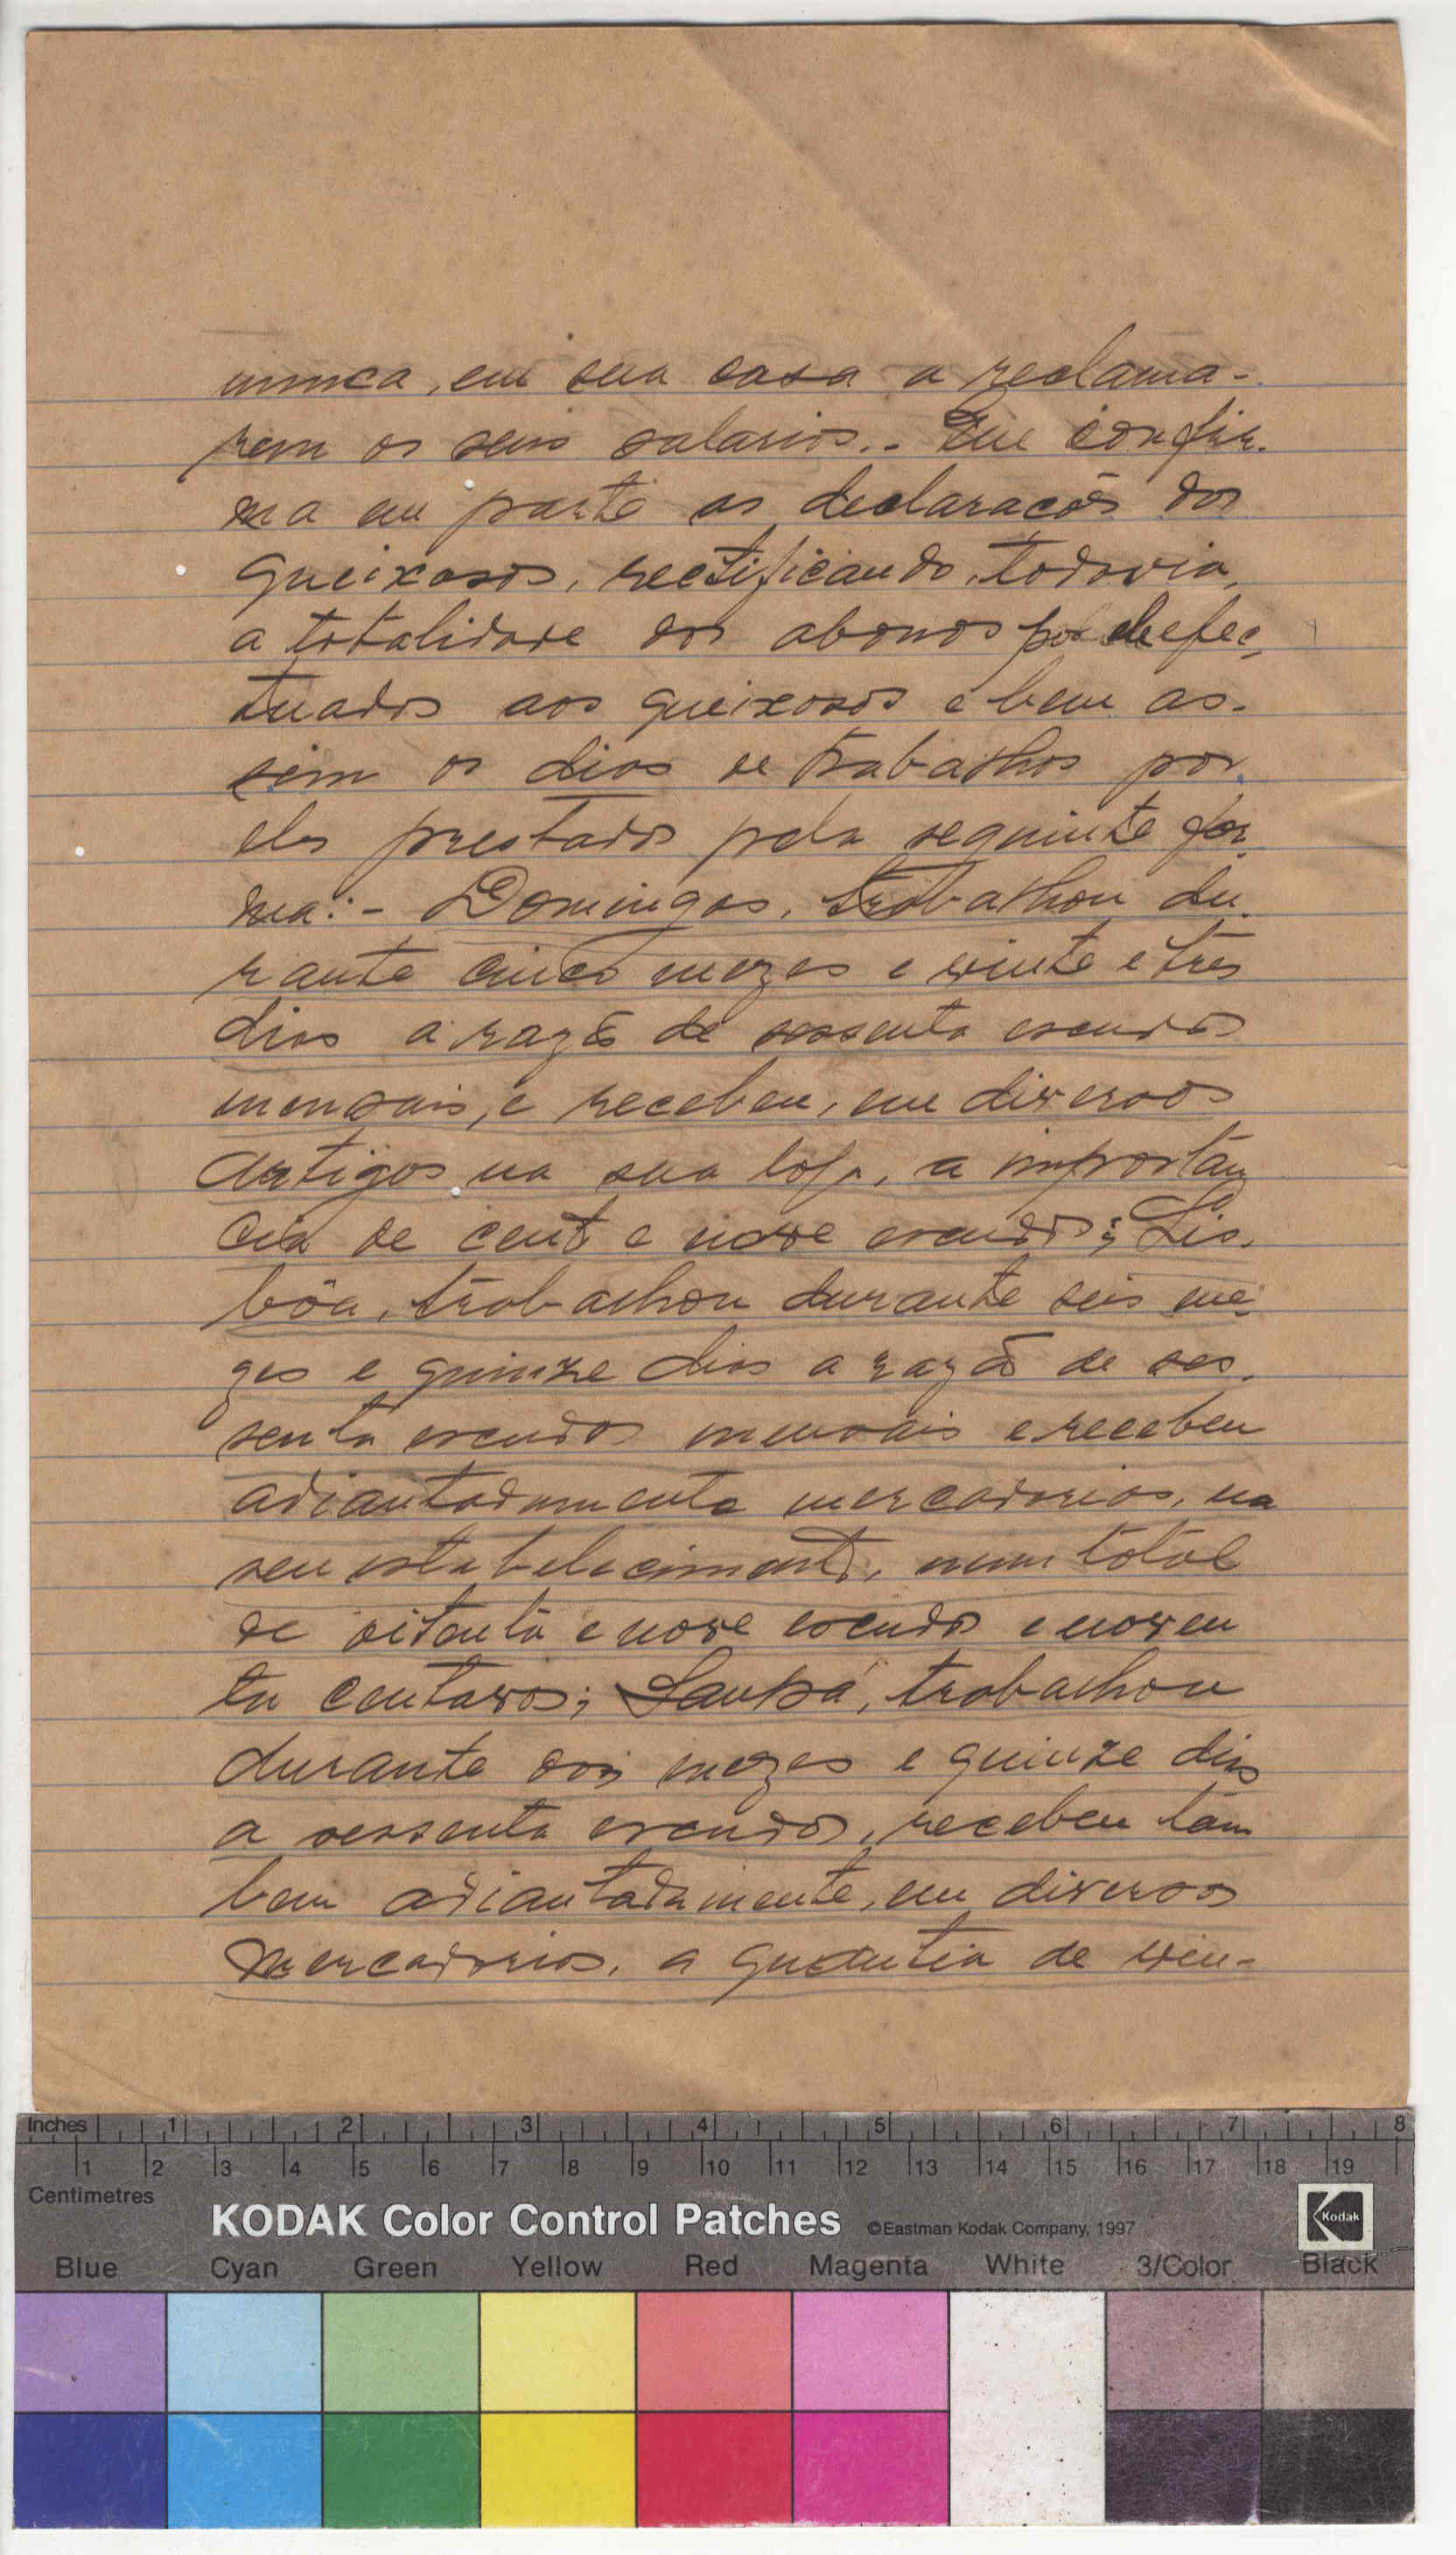 nunca, em sua casa a reclama-
rem os seus salarios.- Que confir-
ma em parte as declaracões dos
queixosos, rectificando, todavia,
a totalidade dos abonos por ele efec-
tuados aos queixosos e bem as-
sim os dias de trabalhos por
eles prestados pela seguinte for
ma:- Domingos, trabalhou du-
rante cinco mezes e vinte e tres
dias a razão de sessenta escudos
mensais, e recebeu, em diversos
artigos na sua loja, a importan
cia de cento e nove escudos; Lis-
bôa, trabalhou durante seis me-
zes e quinze dias a razão de ses-
senta escudos mensais e recebeu
adiantadamente mercadorias, na
seu estabelecimento, num total
de oitenta e nove escudos e noven
ta centavos; Sanhá, trabalhou
durante dois mezes e quinze dias
a sessenta escudos, recebeu tam
bem adiantadamente, em diversos
mercadorias, a quantia de vin-
Inches 1 2 3 4 5 6 7 8
1 2 3 4 5 6 7 8 9 10 11 12 13 14 15 16 17 18 19
Centimetres
KODAK Color Control Patches ©Eastman Kodak Company, 1997 Kodak
Blue Cyan Green Yellow Red Magenta White 3/Color Black